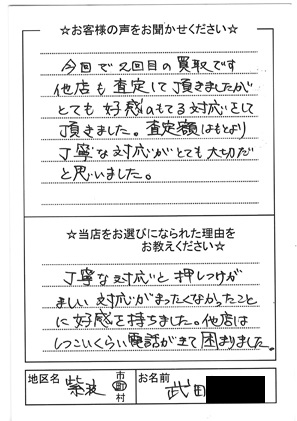 ☆お客様の声をお聞かせください☆
今回で2回目の買取です
他店も査定して頂きましたが
とても好感のもてる対応をして
頂きました。査定額はもとより
丁寧な対応がとても大切だ
と思いました。
☆当店をお選びになられた理由を
お教えください☆
丁寧な対応と押しつけが
ましい対応がまったくなかったこと
に好感を持ちました。他店は
しつこいくらい電話がきて困まりました。
地区名 紫波 市町村 お名前 武田